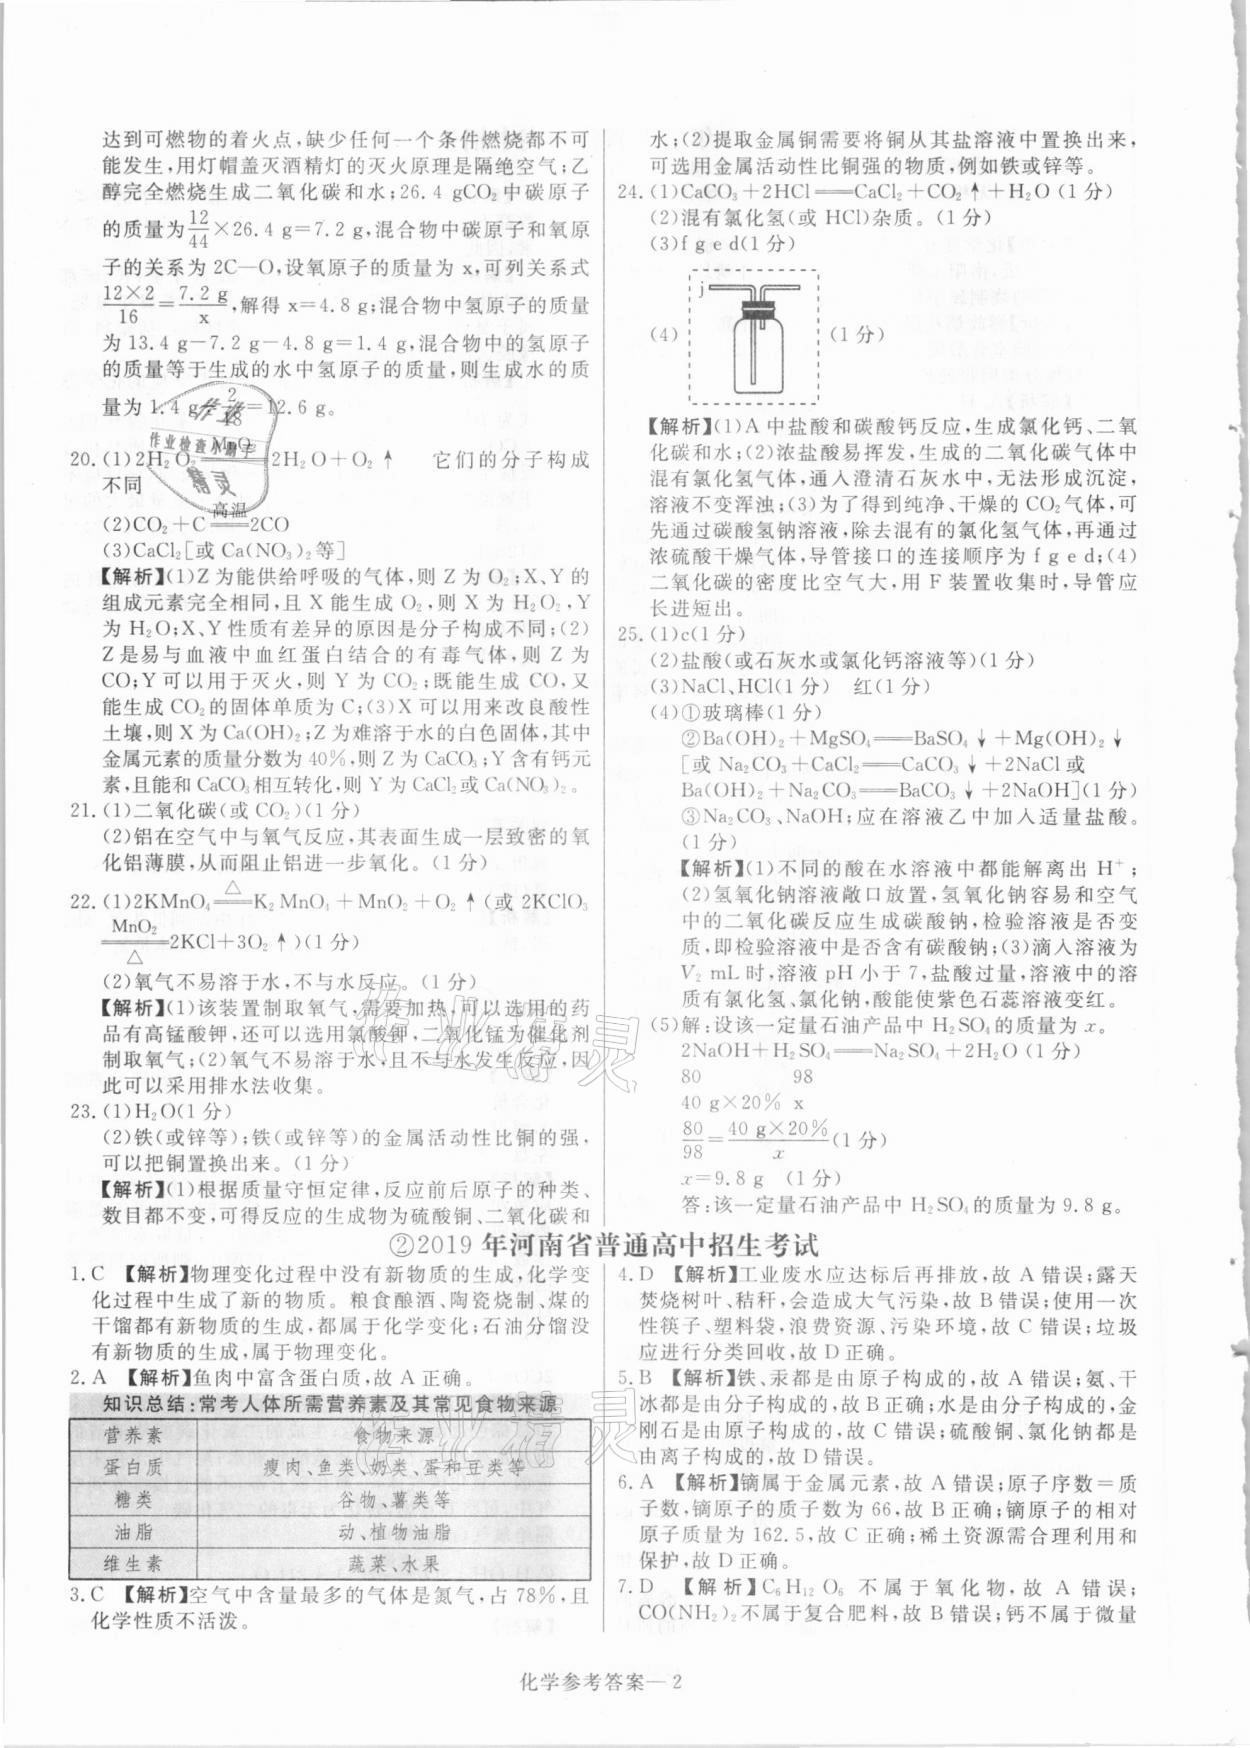 达到可燃物的着火点,缺少任何一个条件燃烧都不可
能发生,用灯帽盖灭酒精灯的灭火原理是隔绝空气;乙
醇完全燃烧生成二氧化碳和水;26.4 gCO₂中碳原子
的质量为12/44×26.4 g=7.2 g,混合物中碳原子和氧原
子的关系为2C—O,设氧原子的质量为x,可列关系式
12×2/16=7.2 g/x,解得x=4.8 g;混合物中氢原子的质量
为13.4 g-7.2 g-4.8 g=1.4 g,混合物中的氢原子
的质量等于生成的水中氢原子的质量,则生成水的质
量为1.4 g÷2/18=12.6 g。
20.(1)2H₂O₂ MnO₂ 2H₂O+O₂↑ 它们的分子构成
不同
(2)CO₂+C 高温 2CO
(3)CaCl₂[或Ca(NO₃)₂等]
【解析】(1)Z为能供给呼吸的气体,则Z为O₂;X、Y的
组成元素完全相同,且X能生成O₂,则X为H₂O₂,Y
为H₂O;X、Y性质有差异的原因是分子构成不同;(2)
Z是易与血液中血红蛋白结合的有毒气体,则Z为
CO;Y可以用于灭火,则Y为CO₂;既能生成CO,又
能生成CO₂的固体单质为C;(3)X可以用来改良酸性
土壤,则X为Ca(OH)₂;Z为难溶于水的白色固体,其中
金属元素的质量分数为40%,则Z为CaCO₃;Y含有钙元
素,且能和CaCO₃相互转化,则Y为CaCl₂或Ca(NO₃)₂。
21.(1)二氧化碳(或CO₂)(1分)
(2)铝在空气中与氧气反应,其表面生成一层致密的氧
化铝薄膜,从而阻止铝进一步氧化。(1分)
22.(1)2KMnO₄ △ K₂MnO₄+MnO₂+O₂↑(或2KClO₃
MnO₂ △ 2KCl+3O₂↑)(1分)
(2)氧气不易溶于水,不与水反应。(1分)
【解析】(1)该装置制取氧气,需要加热,可以选用的药
品有高锰酸钾,还可以选用氯酸钾,二氧化锰为催化剂
制取氧气;(2)氧气不易溶于水,且不与水发生反应,因
此可以采用排水法收集。
23.(1)H₂O(1分)
(2)铁(或锌等);铁(或锌等)的金属活动性比铜的强,
可以把铜置换出来。(1分)
【解析】(1)根据质量守恒定律,反应前后原子的种类、
数目都不变,可得反应的生成物为硫酸铜、二氧化碳和
水;(2)提取金属铜需要将铜从其盐溶液中置换出来,
可选用金属活动性比铜强的物质,例如铁或锌等。
24.(1)CaCO₃+2HCl═CaCl₂+CO₂↑+H₂O(1分)
(2)混有氯化氢(或HCl)杂质。(1分)
(3)f g e d(1分)
j
(4) (1分)
【解析】(1)A中盐酸和碳酸钙反应,生成氯化钙、二氧
化碳和水;(2)浓盐酸易挥发,生成的二氧化碳气体中
混有氯化氢气体,通入澄清石灰水中,无法形成沉淀,
溶液不变浑浊;(3)为了得到纯净、干燥的CO₂气体,可
先通过碳酸氢钠溶液,除去混有的氯化氢气体,再通过
浓硫酸干燥气体,导管接口的连接顺序为f g e d;(4)
二氧化碳的密度比空气大,用F装置收集时,导管应
长进短出。
25.(1)c(1分)
(2)盐酸(或石灰水或氯化钙溶液等)(1分)
(3)NaCl、HCl(1分) 红(1分)
(4)①玻璃棒(1分)
②Ba(OH)₂+MgSO₄═BaSO₄↓+Mg(OH)₂↓
[或Na₂CO₃+CaCl₂═CaCO₃↓+2NaCl或
Ba(OH)₂+Na₂CO₃═BaCO₃↓+2NaOH](1分)
③Na₂CO₃、NaOH;应在溶液乙中加入适量盐酸。
(1分)
【解析】(1)不同的酸在水溶液中都能解离出H⁺;
(2)氢氧化钠溶液敞口放置,氢氧化钠容易和空气
中的二氧化碳反应生成碳酸钠,检验溶液是否变
质,即检验溶液中是否含有碳酸钠;(3)滴入溶液为
V₂ mL时,溶液pH小于7,盐酸过量,溶液中的溶
质有氯化氢、氯化钠,酸能使紫色石蕊溶液变红。
(5)解:设该一定量石油产品中H₂SO₄的质量为x。
2NaOH+H₂SO₄═Na₂SO₄+2H₂O(1分)
80 98
40 g×20% x
80/98=40 g×20%/x(1分)
x=9.8 g (1分)
答:该一定量石油产品中H₂SO₄的质量为9.8 g。
②2019年河南省普通高中招生考试
1.C 【解析】物理变化过程中没有新物质的生成,化学变
化过程中生成了新的物质。粮食酿酒、陶瓷烧制、煤的
干馏都有新物质的生成,都属于化学变化;石油分馏没
有新物质的生成,属于物理变化。
2.A 【解析】鱼肉中富含蛋白质,故A正确。
知识总结:常考人体所需营养素及其常见食物来源
营养素 食物来源
蛋白质 瘦肉、鱼类、奶类、蛋和豆类等
糖类 谷物、薯类等
油脂 动、植物油脂
维生素 蔬菜、水果
3.C 【解析】空气中含量最多的气体是氮气,占78%,且
化学性质不活泼。
4.D 【解析】工业废水应达标后再排放,故A错误;露天
焚烧树叶、秸秆,会造成大气污染,故B错误;使用一次
性筷子、塑料袋,浪费资源、污染环境,故C错误;垃圾
应进行分类回收,故D正确。
5.B 【解析】铁、汞都是由原子构成的,故A错误;氨、干
冰都是由分子构成的,故B正确;水是由分子构成的,金
刚石是由原子构成的,故C错误;硫酸铜、氯化钠都是
由离子构成的,故D错误。
6.A 【解析】镝属于金属元素,故A错误;原子序数=质
子数,镝原子的质子数为66,故B正确;镝原子的相对
原子质量为162.5,故C正确;稀土资源需合理利用和
保护,故D正确。
7.D 【解析】C₆H₁₂O₆不属于氧化物,故A错误;
CO(NH₂)₂不属于复合肥料,故B错误;钙不属于微量
化学参考答案—2
作业
作业检查小助手
精灵
作业精灵
作业精灵